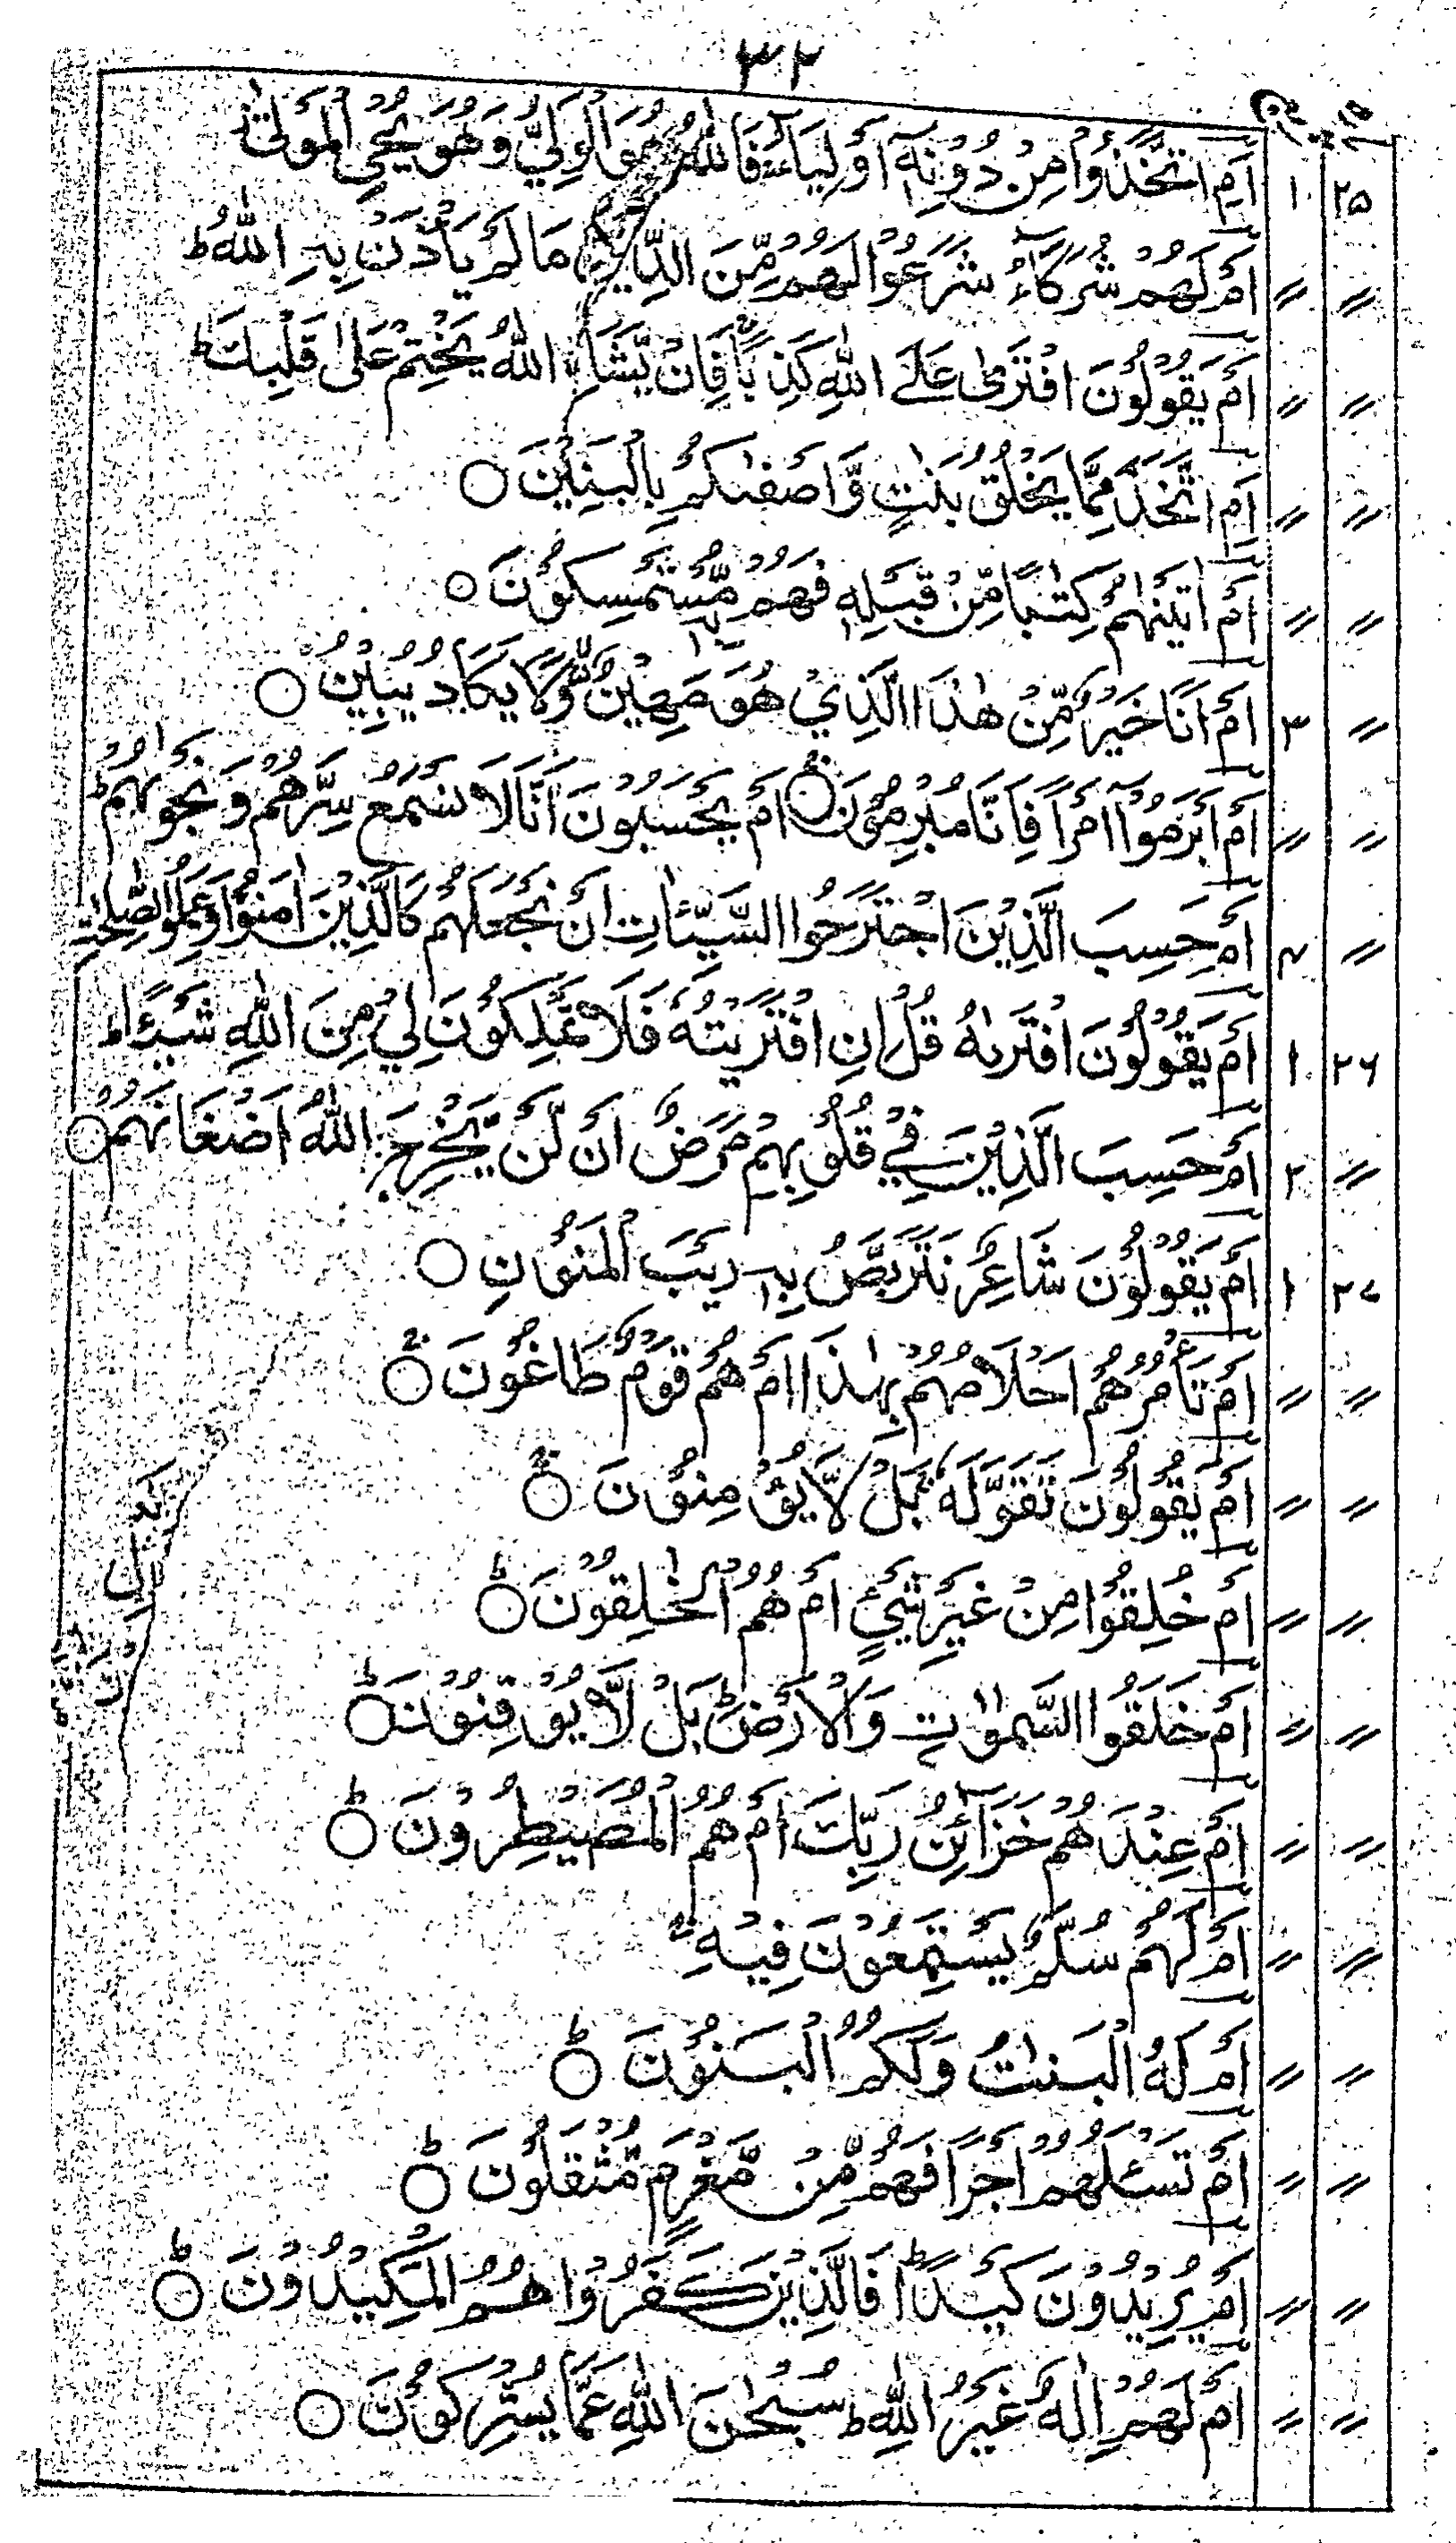 ۳۲
۲۵ ۱ اَمِ اتَّخَذُوْا مِنْ دُوْنِهٖۤ اَوْلِيَآءَ فَاللّٰهُ هُوَ الْوَلِيُّ وَهُوَ يُحْيِ الْمَوْتٰى
〃 〃 اَمْ لَهُمْ شُرَكٰٓؤُا شَرَعُوْا لَهُمْ مِّنَ الدِّيْنِ مَا لَمْ يَاْذَنْ بِهِ اللّٰهُ ط
〃 〃 اَمْ يَقُوْلُوْنَ افْتَرٰى عَلَى اللّٰهِ كَذِبًا فَاِنْ يَّشَاِ اللّٰهُ يَخْتِمْ عَلٰى قَلْبِكَ ط
〃 〃 اَمِ اتَّخَذَ مِمَّا يَخْلُقُ بَنٰتٍ وَّاَصْفٰىكُمْ بِالْبَنِيْنَ ○
〃 〃 اَمْ اٰتَيْنٰهُمْ كِتٰبًا مِّنْ قَبْلِهٖ فَهُمْ مُّسْتَمْسِكُوْنَ ○
〃 ۳ اَمْ اَنَا خَيْرٌ مِّنْ هٰذَا الَّذِيْ هُوَ مَهِيْنٌ وَّلَا يَكَادُ يُبِيْنُ ○
〃 〃 اَمْ اَبْرَمُوْۤا اَمْرًا فَاِنَّا مُبْرِمُوْنَ ○ اَمْ يَحْسَبُوْنَ اَنَّا لَا نَسْمَعُ سِرَّهُمْ وَنَجْوٰىهُمْ ط
〃 ۴ اَمْ حَسِبَ الَّذِيْنَ اجْتَرَحُوا السَّيِّاٰتِ اَنْ نَّجْعَلَهُمْ كَالَّذِيْنَ اٰمَنُوْا وَعَمِلُوا الصّٰلِحٰتِ
۲۶ ۱ اَمْ يَقُوْلُوْنَ افْتَرٰىهُ قُلْ اِنِ افْتَرَيْتُهٗ فَلَا تَمْلِكُوْنَ لِيْ مِنَ اللّٰهِ شَيْئًا ط
〃 ۲ اَمْ حَسِبَ الَّذِيْنَ فِيْ قُلُوْبِهِمْ مَّرَضٌ اَنْ لَّنْ يُّخْرِجَ اللّٰهُ اَضْغَانَهُمْ ○
۲۷ ۱ اَمْ يَقُوْلُوْنَ شَاعِرٌ نَّتَرَبَّصُ بِهٖ رَيْبَ الْمَنُوْنِ ○
〃 〃 اَمْ تَاْمُرُهُمْ اَحْلَامُهُمْ بِهٰذَا اَمْ هُمْ قَوْمٌ طَاغُوْنَ ○
〃 〃 اَمْ يَقُوْلُوْنَ تَقَوَّلَهٗ بَلْ لَّا يُؤْمِنُوْنَ ○
〃 〃 اَمْ خُلِقُوْا مِنْ غَيْرِ شَيْءٍ اَمْ هُمُ الْخٰلِقُوْنَ ○ ط
〃 〃 اَمْ خَلَقُوا السَّمٰوٰتِ وَالْاَرْضَ بَلْ لَّا يُوْقِنُوْنَ ○ ط
〃 〃 اَمْ عِنْدَهُمْ خَزَآئِنُ رَبِّكَ اَمْ هُمُ الْمُصَۜيْطِرُوْنَ ○ ط
〃 〃 اَمْ لَهُمْ سُلَّمٌ يَّسْتَمِعُوْنَ فِيْهِ
〃 〃 اَمْ لَهُ الْبَنٰتُ وَلَكُمُ الْبَنُوْنَ ○ ط
〃 〃 اَمْ تَسْئَلُهُمْ اَجْرًا فَهُمْ مِّنْ مَّغْرَمٍ مُّثْقَلُوْنَ ○ ط
〃 〃 اَمْ يُرِيْدُوْنَ كَيْدًا ط فَالَّذِيْنَ كَفَرُوْا هُمُ الْمَكِيْدُوْنَ ○ ط
〃 〃 اَمْ لَهُمْ اِلٰهٌ غَيْرُ اللّٰهِ ط سُبْحٰنَ اللّٰهِ عَمَّا يُشْرِكُوْنَ ○